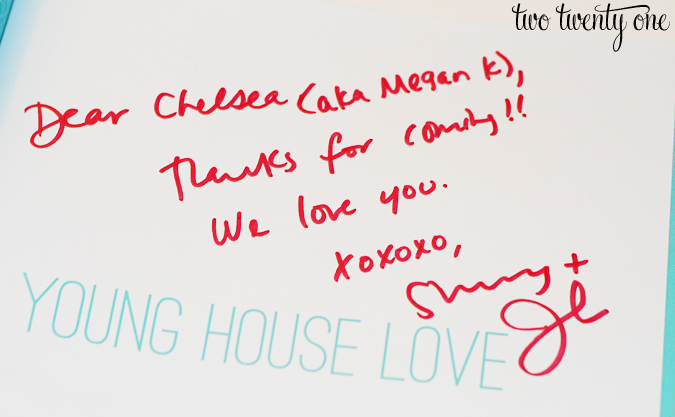 two twenty one
Dear Chelsea (aka Megan K),
Thanks for coming!!
We love you.
xoxoxo,
Sherry +
YOUNG HOUSE LOVE